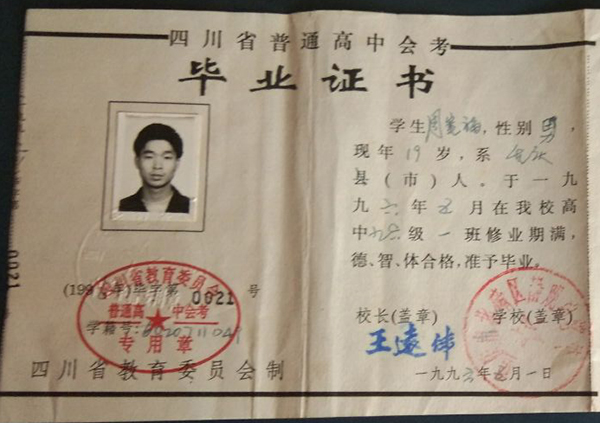 四川省普通高中会考
毕业证书
学生周 福,性别男,
现年19岁,系
县(市)人。于一九
九六年 月在我校高
中 级一班修业期满,
德、智、体合格,准予毕业。
校长(盖章) 学校(盖章)
王远
一九九 年 月一日
(199 年)毕字第0021号
四川省教育委员会
普通高中会考
学籍号:
专用章
四川省教育委员会制
0021